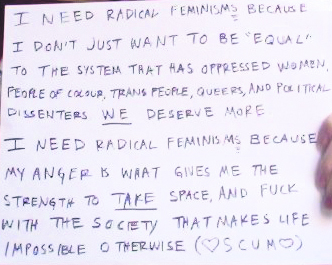 I NEED RADICAL FEMINISMS BECAUSE
I DON'T JUST WANT TO BE "EQUAL"
TO THE SYSTEM THAT HAS OPPRESSED WOMEN,
PEOPLE OF COLOUR, TRANS PEOPLE, QUEERS, AND POLITICAL
DISSENTERS WE DESERVE MORE
I NEED RADICAL FEMINISMS BECAUSE
MY ANGER IS WHAT GIVES ME THE
STRENGTH TO TAKE SPACE, AND FUCK
WITH THE SOCIETY THAT MAKES LIFE
IMPOSSIBLE OTHERWISE (♡SCUM♡)